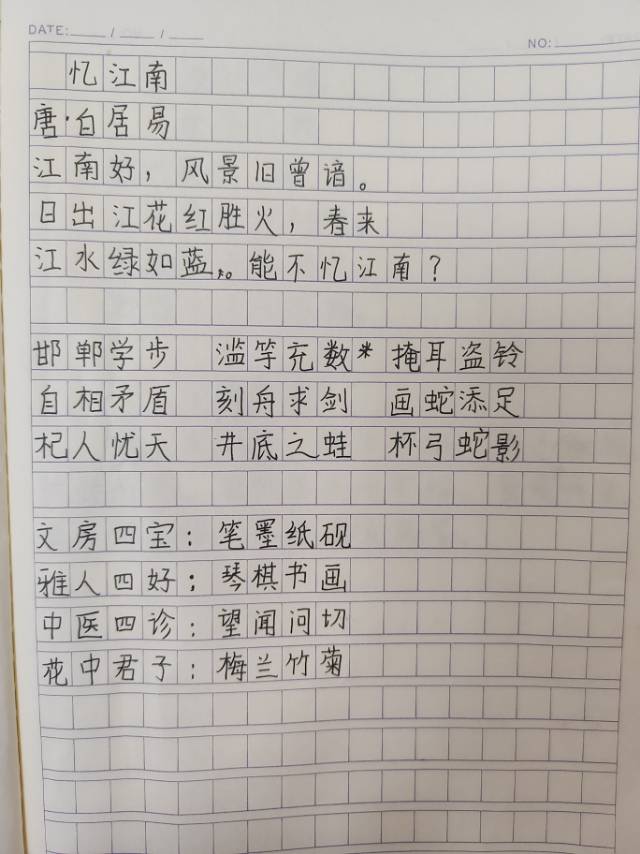 DATE: ___ / ___ / ___
NO: ___
忆江南
唐·白居易
江南好，风景旧曾谙。
日出江花红胜火，春来
江水绿如蓝。能不忆江南？
邯郸学步 滥竽充数* 掩耳盗铃
自相矛盾 刻舟求剑 画蛇添足
杞人忧天 井底之蛙 杯弓蛇影
文房四宝：笔墨纸砚
雅人四好；琴棋书画
中医四诊：望闻问切
花中君子：梅兰竹菊